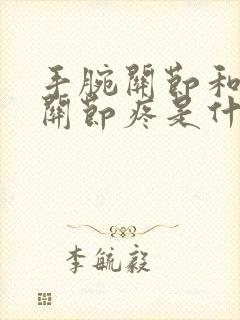 手腕關節和
關節疼是什
李毓毅